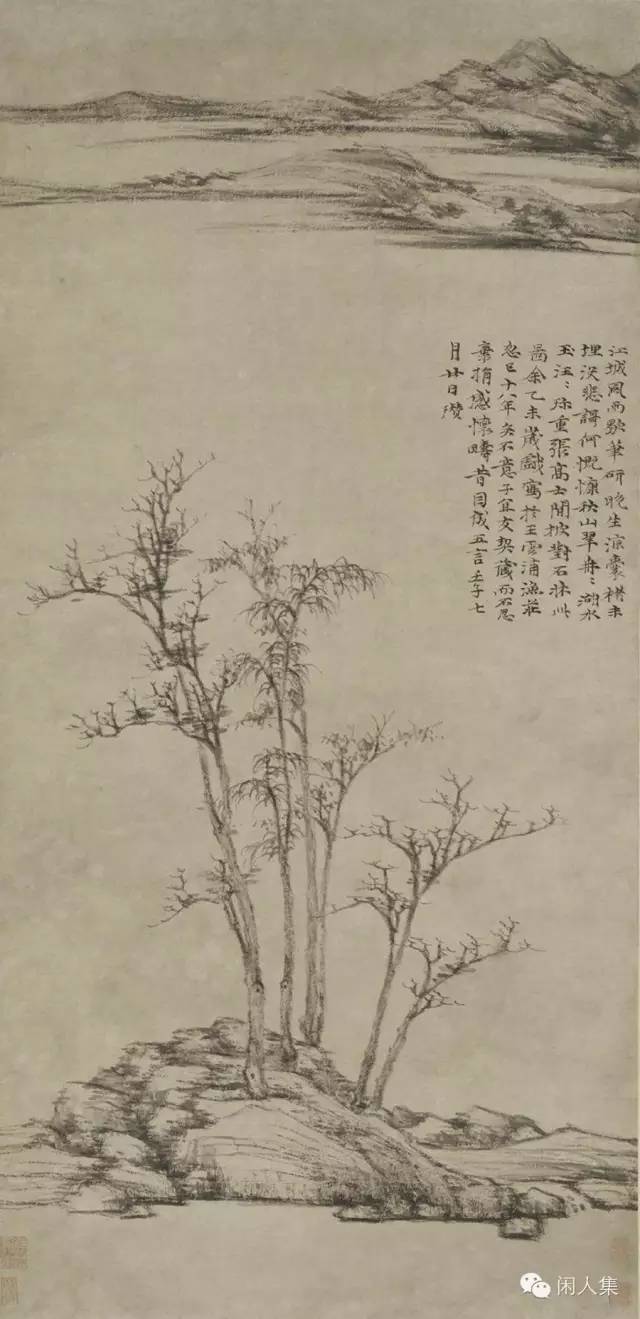 江城風雨歇筆研晚生涼囊楮未
埋没悲謌何慨慷秋山翠冉〻湖水
玉汪〻珎重張高士閒披對石牀此
啚余乙未歲戲寫於王雲浦漁莊
忽已十八年矣不意子宜友契藏而不忍
棄捐感懷疇昔因成五言壬子七
月廿日瓚
闲人集